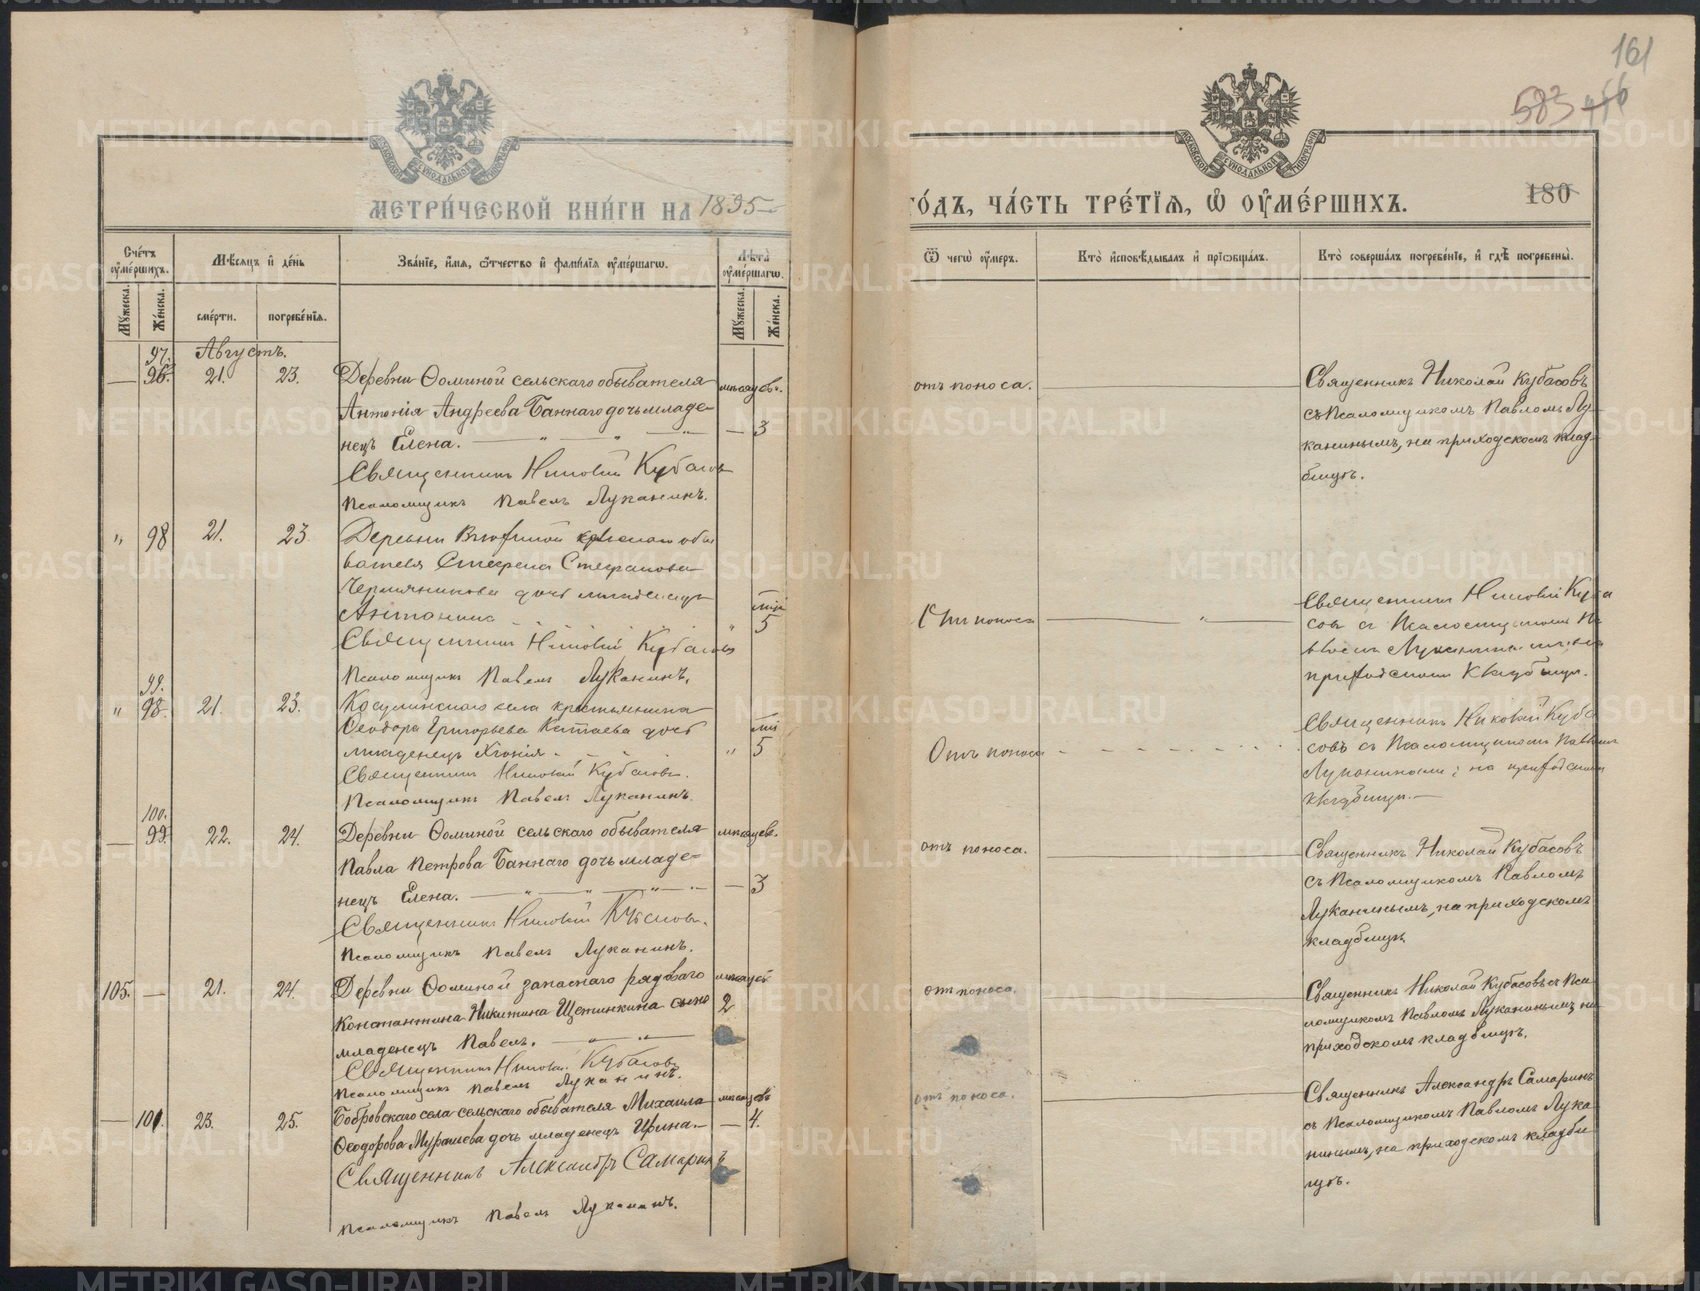 161
583
180
МЕТРИ́ЧЕСКОЙ КНИ́ГИ НА 1895
ГО́ДЪ, ЧА́СТЬ ТРЕ́ТЇѦ, Ѡ҆ ОУ҆МЕ́РШИХЪ.
Сче́тъ оу҆ме́ршихъ.
Мѣ́сѧцъ и҆ де́нь
Зва́нїе, и҆́мѧ, ѻ҆́тчество и҆ фами́лїѧ оу҆ме́ршагѡ.
Лѣ́та оу҆ме́ршагѡ.
Му́жеска.
Же́нска.
сме́рти.
погребе́нїѧ.
Му́жеска.
Же́нска.
Ѿ чегѡ̀ оу҆́меръ.
Кто̀ и҆сповѣ́дывалъ и҆ прїѡбща́лъ.
Кто̀ соверша́лъ погребе́нїе, и҆ гдѣ̀ погребены̀.
Августъ.
97.
96.
21.
23.
Деревни Ѳоминой сельскаго обывателя
Антонія Андреева Баннаго дочь младе-
нецъ Елена.
месяцев.
3
Священникъ Николай Кубасовъ
Псаломщикъ Павелъ Луканинъ.
отъ поноса.
Священникъ Николай Кубасовъ
съ Псаломщикомъ Павломъ Лу-
канинымъ, на приходскомъ клад-
бищѣ.
98
21.
23.
Деревни
вателя Стефана Степанова
дочь младенецъ
Антонина
5
Священникъ Николай Кубасовъ
Псаломщикъ Павелъ Луканинъ.
Отъ поноса
Священникъ Николай Куба
совъ съ Псаломщикомъ Па
приходскомъ кладбищѣ.
99.
98.
21.
23.
Косулинскаго села крестьянина
Ѳеодора Григорьева Катаева дочь
младенецъ Хіонія
5
Священникъ Николай Кубасовъ.
Псаломщикъ Павелъ Луканинъ.
Отъ поноса
Священникъ Николай Куба
совъ съ Псаломщикомъ Павломъ
Луканинымъ; на приходскомъ
кладбищѣ.
100.
99.
22.
24.
Деревни Ѳоминой сельскаго обывателя
Павла Петрова Баннаго дочь младе-
нецъ Елена.
месяцев.
3
Священникъ Николай Кубасовъ.
Псаломщикъ Павелъ Луканинъ.
отъ поноса.
Священникъ Николай Кубасовъ
съ Псаломщикомъ Павломъ
Луканинымъ, на приходскомъ
кладбищѣ
105.
21.
24.
Деревни Ѳоминой запаснаго рядоваго
Константина Никитина Щетинкина сынъ
младенецъ Павелъ.
2
Священникъ Николай Кубасовъ
Псаломщикъ Павелъ Луканинъ.
отъ поноса.
Священникъ Николай Кубасовъ съ Пса
ломщикомъ Павломъ Луканинымъ на
приходскомъ кладбищѣ.
101.
23.
25.
Бобровскаго села сельскаго обывателя Михаила
Ѳеодорова Мурашева дочь младенецъ Ирина.
4.
Священникъ Александръ Самаринъ
Псаломщикъ Павелъ Луканинъ.
отъ поноса.
Священникъ Александръ Самаринъ
съ Псаломщикомъ Павломъ Лука
нинымъ, на приходскомъ кладби
щѣ.
METRIKI.GASO-URAL.RU